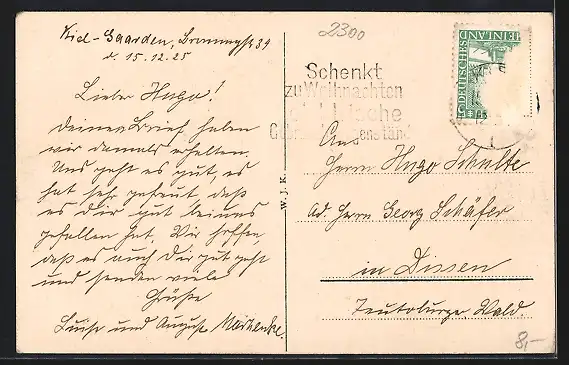 Kiel-Gaarden, 39
d. 15.12.25
Lieber Hugo!
Deinen Brief haben
wir damals erhalten.
Uns geht es gut, es
hat sehr gefreut, daß
es dir gut bei uns
gefallen hat. Wir hoffen,
daß es auch Dir gut geht
und senden viele
Grüße
Luise und August
W.J.K.
2300
Schenkt
zu Weihnachten
DEUTSCHES
RHEINLAND
An
Herrn Hugo Schulte
Ad. Herrn Georg Schäfer
in Dissen
Teutoburger Wald.
8,-